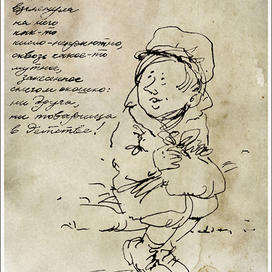 Взглянула
на него
как-то
кисло-неуютно,
сквозь какое-то
мутное,
засеянное
снегом окошко:
ни друга,
ни товарища
в детстве!